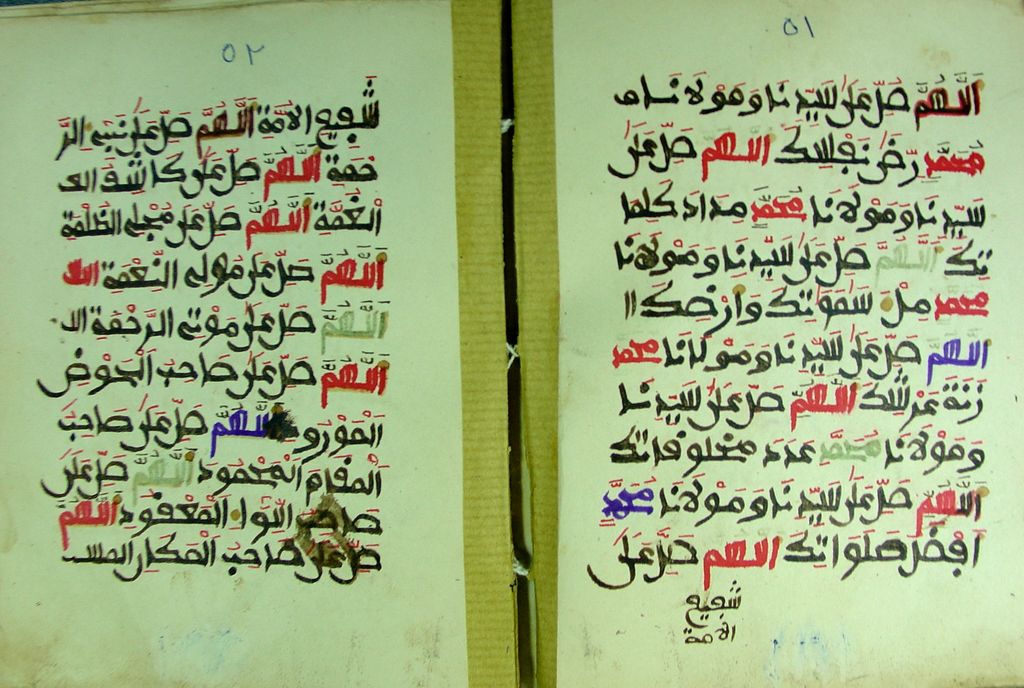 ٥١
اللهم صل على سيدنا ومولانا م
محمد رضى نفسك اللهم صل على
سيدنا ومولانا محمد مداد كلما
تك اللهم صل على سيدنا ومولانا
محمد ملء سمواتك وارضك
اللهم صل على سيدنا ومولانا محمد
زنة عرشك اللهم صل على سيدنا
ومولانا محمد عدد مخلوقاتك
اللهم صل على سيدنا ومولانا محمد
افضل صلواتك اللهم صل على
شفيع
الامة
٥٢
شفيع الامة اللهم صل على نبي الر
حمة اللهم صل على كاشف ال
الغمة اللهم صل على مجلي الظلمة
اللهم صل على مولي النعمة ال
اللهم صل على موتي الرحمة ال
اللهم صل على صاحب الحوض
المورود اللهم صل على صاحب
المقام المحمود اللهم صل على
صاحب اللوا المعقود اللهم
صل على صاحب المكان